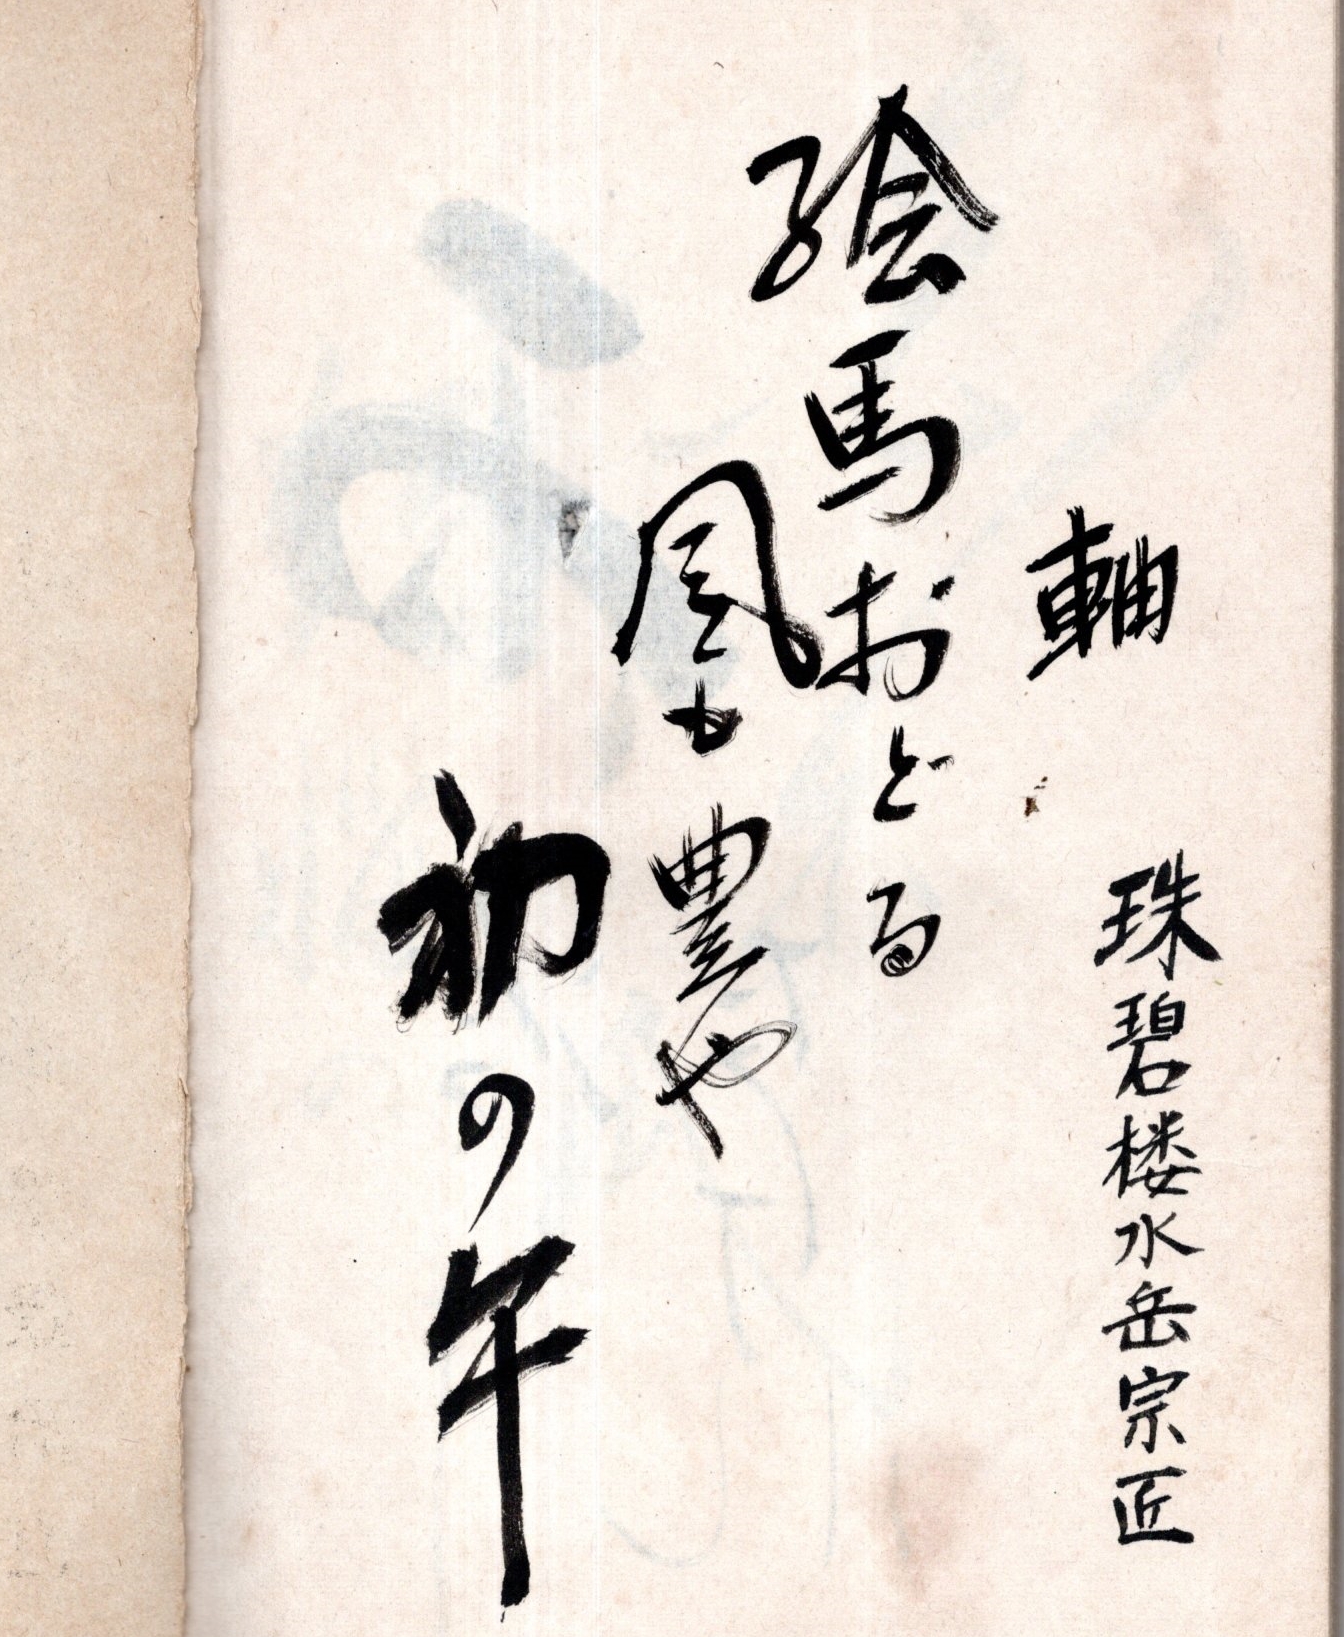 軸
珠碧楼水岳宗匠
絵馬おどる
風も豊や
初の午